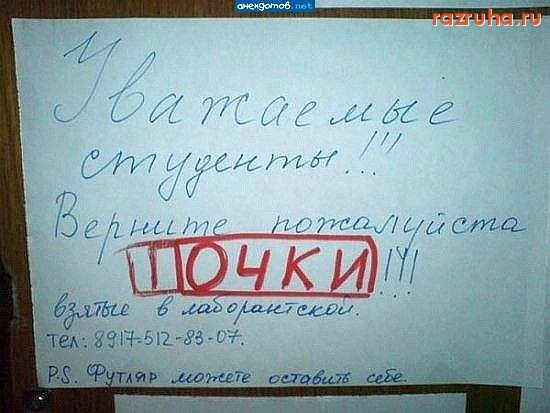 анекдотов.net
razruha.ru
Уважаемые
студенты!!!
Верните пожалуйста
ТОЧКИ!!!
взятые в лаборантской.
тел: 8917-512-83-07.
P.S. Футляр можете оставить себе.